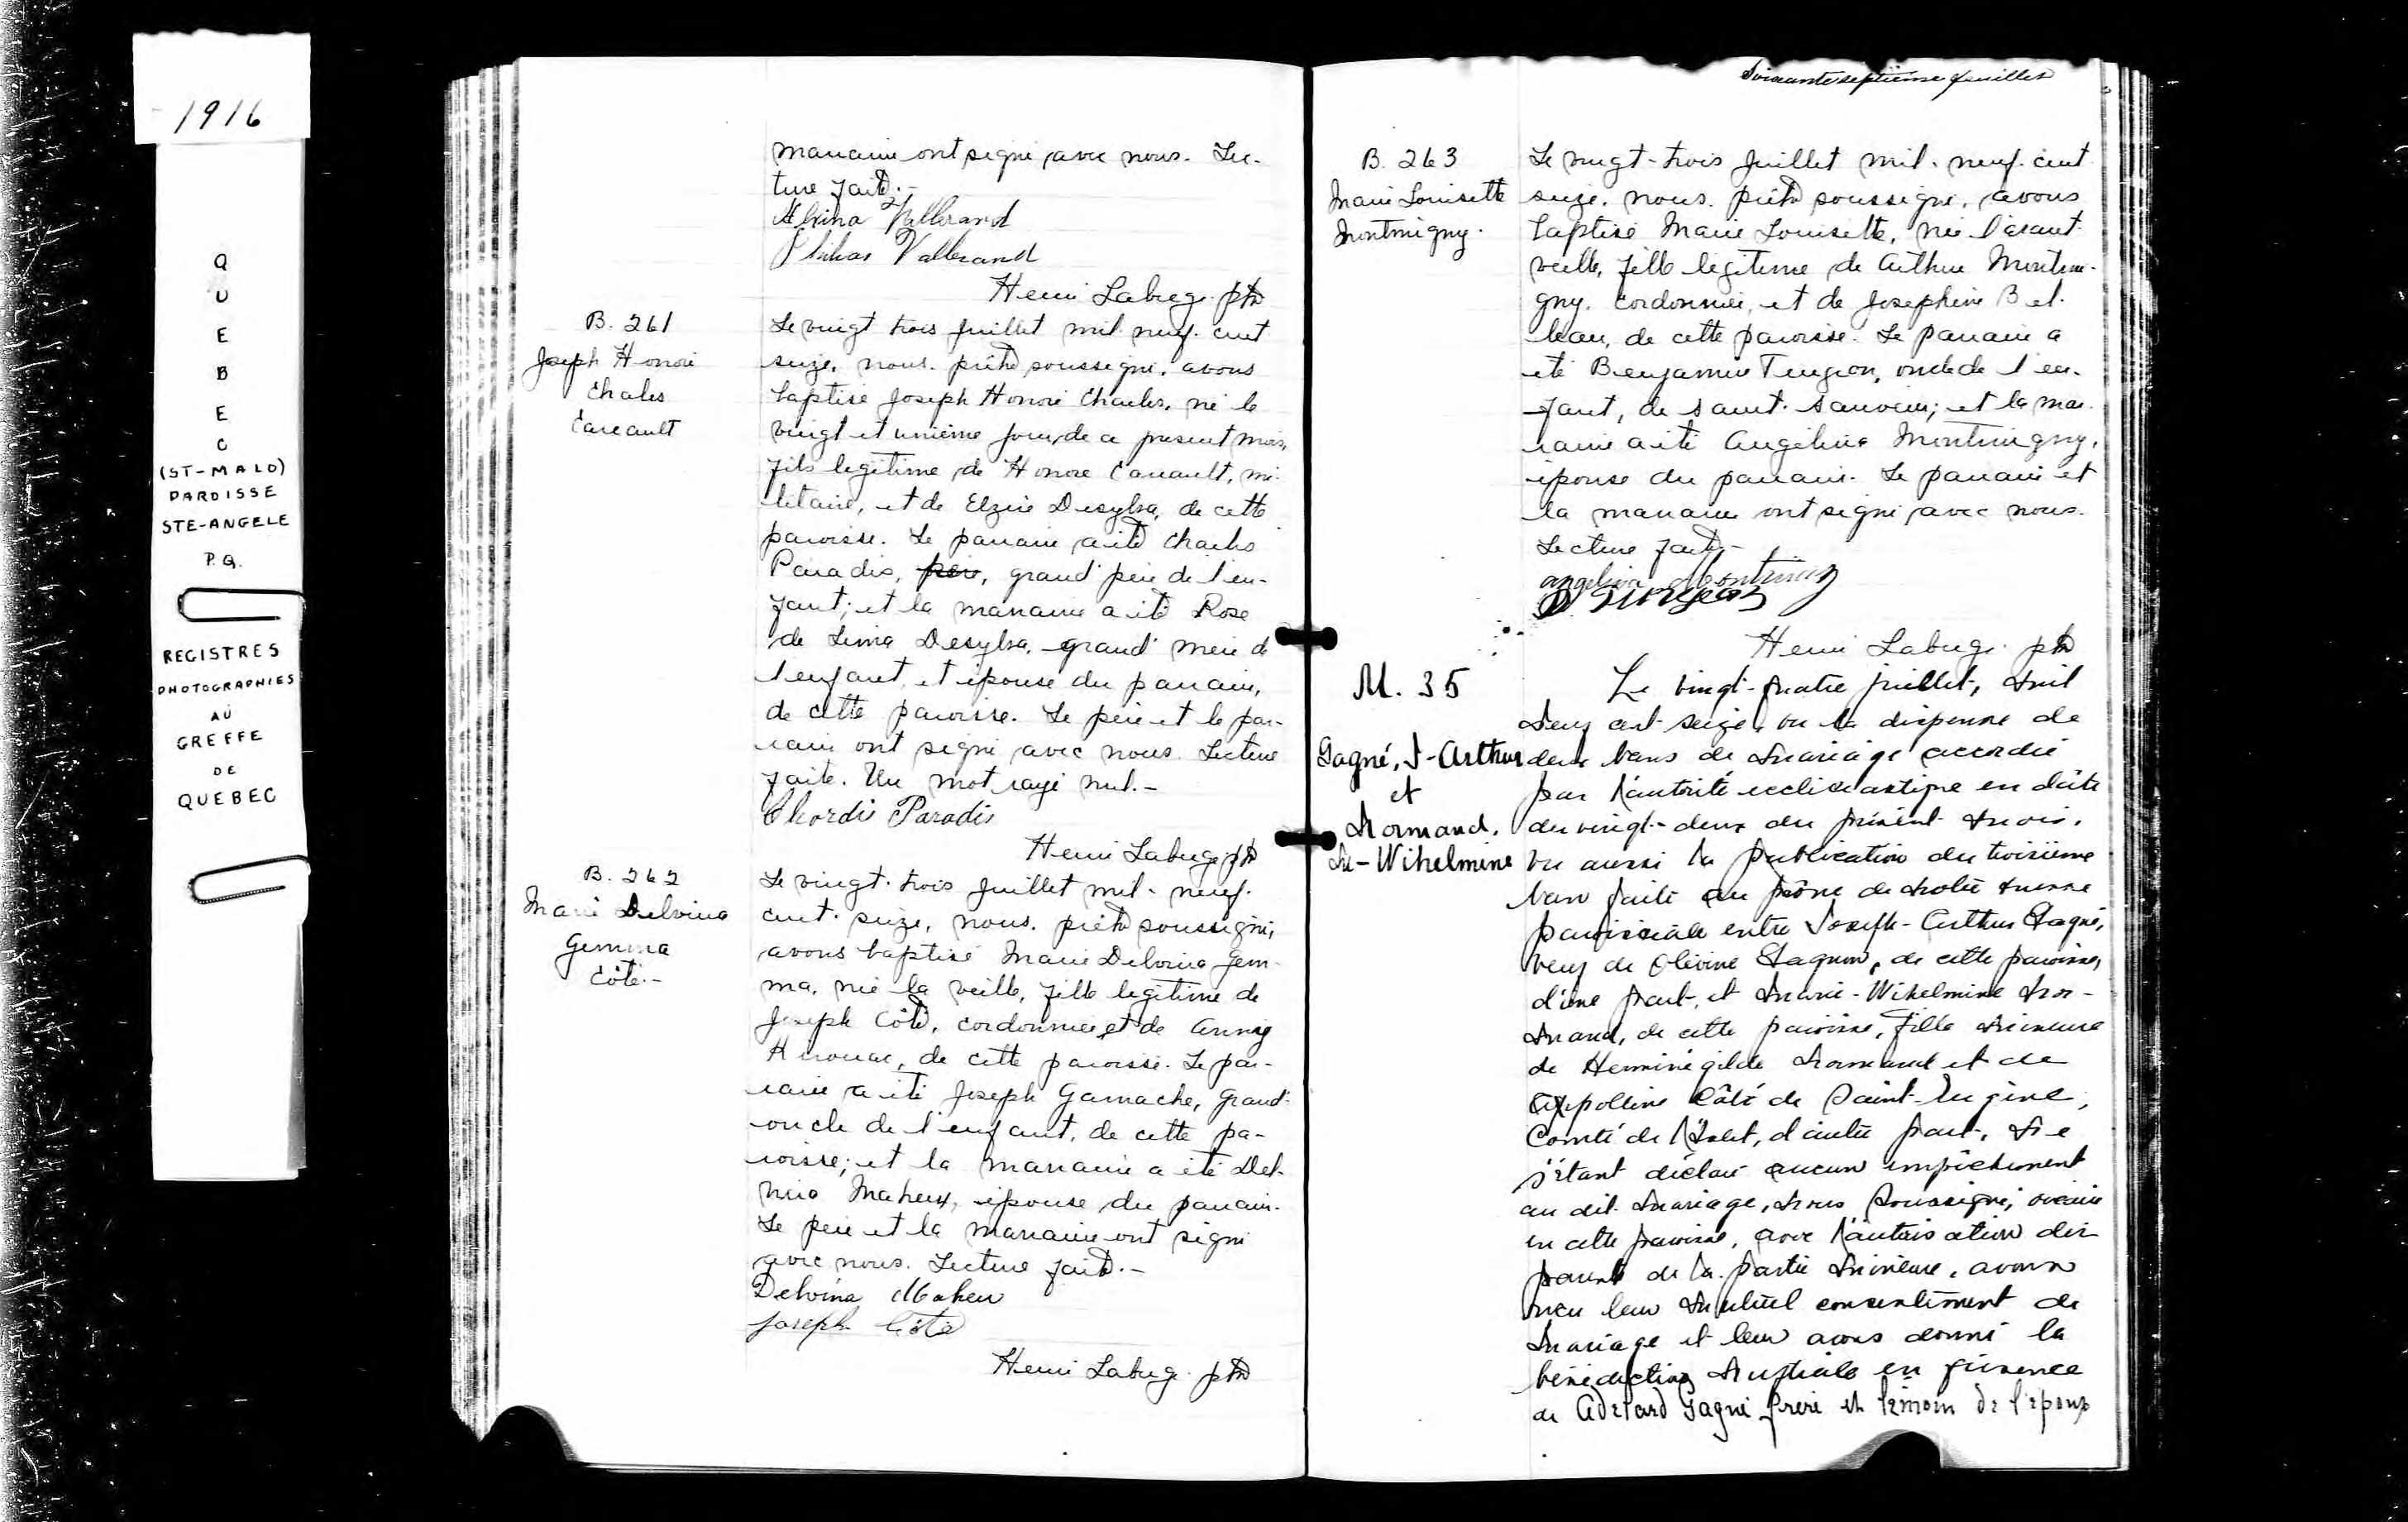 1916
QUEBEC
(ST-MALO)
PAROISSE
STE-ANGELE
P.Q.
REGISTRES
PHOTOGRAPHIES
AU
GREFFE
DE
QUEBEC
marraine ont signé avec nous. Lec-
ture faite.-
Vallerand
Vallerand
Henri Laberge ptre
B. 261
Joseph Honoré
Charles
Careault
Le vingt trois juillet mil neuf cent
seize, nous, prêtre soussigné, avons
baptisé Joseph Honoré Charles, né le
vingt et unième jour de ce présent mois,
fils légitime de Honoré Careault, mi-
litaire, et de Elzire Desylva, de cette
paroisse. Le parrain a été Charles
Paradis, père, grand père de l'en-
fant; et la marraine a été Rose
de Lima Desylva, grand mère de
l'enfant et épouse du parrain,
de cette paroisse. Le père et le par-
rain ont signé avec nous. Lecture
faite. Un mot rayé nul.-
Paradis
Henri Laberge ptre
B. 262
Marie Delvina
Gemma
Côté.-
Le vingt-trois juillet mil-neuf-
cent-seize, nous, prêtre soussigné,
avons baptisé Marie Delvina Gem-
ma, née la veille, fille légitime de
Joseph Côté, cordonnier et de Annie
de cette paroisse. Le par-
rain a été Joseph Gamache, grand-
oncle de l'enfant, de cette pa-
roisse; et la marraine a été Del-
vina Maheux, épouse du parrain.
Le père et la marraine ont signé
avec nous. Lecture faite.-
Delvina Maheu
Joseph Côté
Henri Laberge ptre
Soixante septième feuillet
B. 263
Marie Louisette
Montmigny.
Le vingt-trois juillet mil-neuf-cent
seize, nous, prêtre soussigné, avons
baptisé Marie Louisette, née l'avant-
veille, fille légitime de Arthur Montmi-
gny, cordonnier, et de Josephine Bel-
leau, de cette paroisse. Le parrain a
été Benjamin Turgeon, oncle de l'en-
fant, de Saint-Sauveur; et la mar-
raine a été Angélina Montmigny,
épouse du parrain. Le parrain et
la marraine ont signé avec nous.
Lecture faite.-
Angelina Montminy
B. Turgeon
Henri Laberge ptre
M. 35
Gagné, J-Arthur
et
Normand,
M-Wihelmine
Le vingt-quatre juillet, mil
neuf cent seize, vu la dispense de
deux bans de mariage accordée
par l'autorité ecclésiastique en date
du vingt-deux du présent mois,
vu aussi la publication du troisième
ban faite au prône de notre messe
paroissiale entre Joseph-Arthur Gagné,
veuf de Olévine Gagnon, de cette paroisse,
d'une part, et Marie-Wihelmine Nor-
mand, de cette paroisse, fille mineure
de Herménégilde Normand et de
Appolline Côté de Saint-Eugène,
Comté de l'Islet, d'autre part, ne
s'étant déclaré aucun empêchement
au dit mariage, nous soussigné, vicaire
en cette paroisse, avec l'autorisation des
parents de la partie mineure, avons
reçu leur mutuel consentement de
mariage et leur avons donné la
bénédiction nuptiale en présence
de Adélard Gagné frère et témoin de l'époux